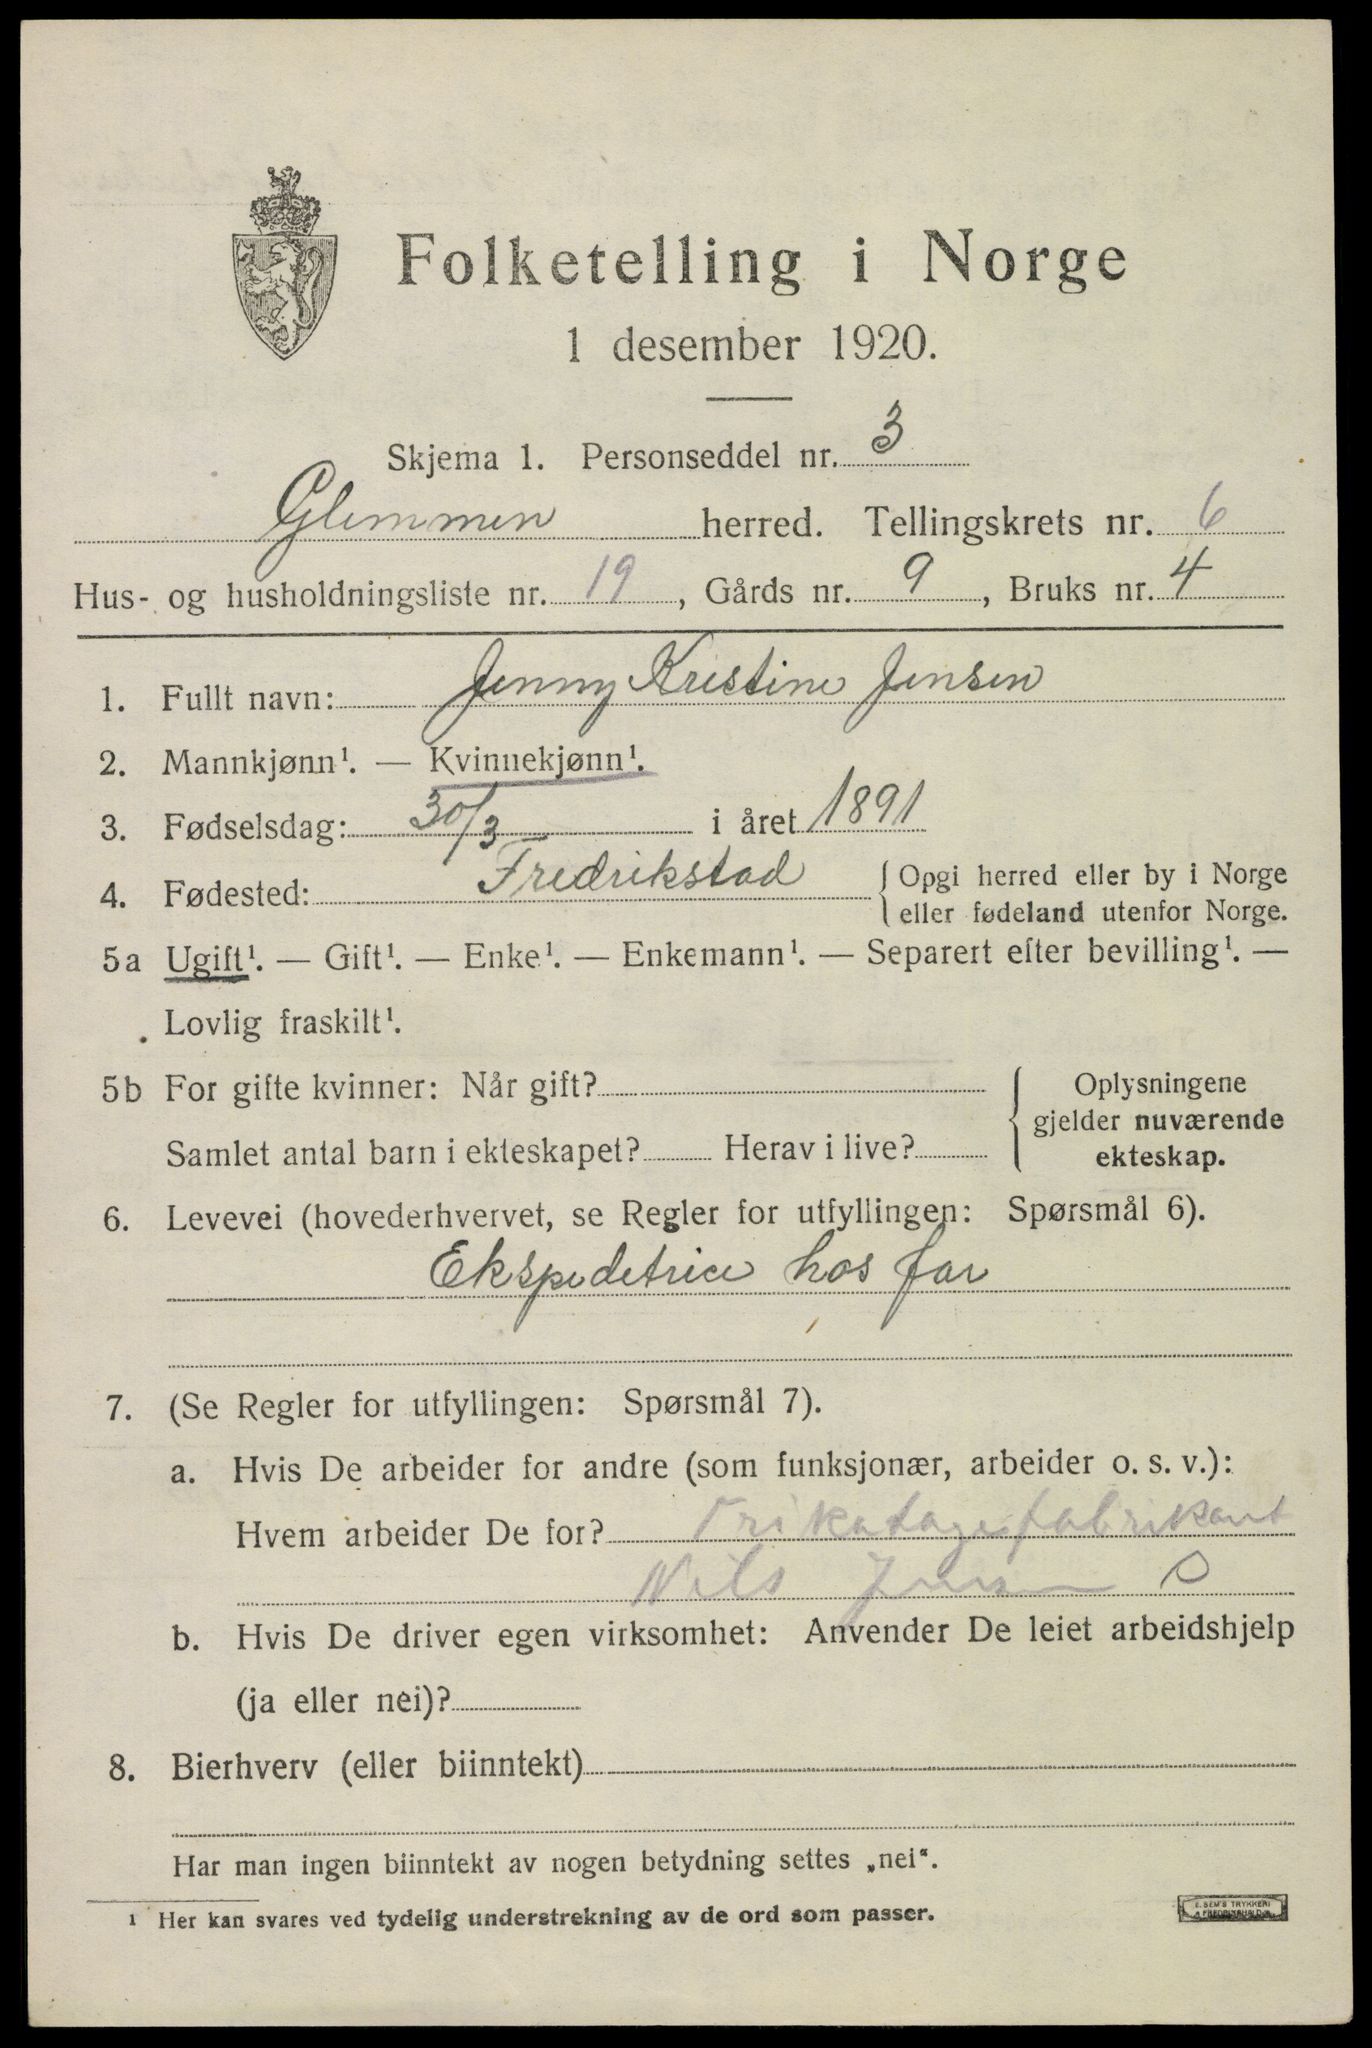 Folketelling i Norge
1 desember 1920.
Skjema 1. Personseddel nr. 3
Glemmen herred. Tellingskrets nr. 6
Hus- og husholdningsliste nr. 19, Gårds nr. 9, Bruks nr. 4
1. Fullt navn: Jenny Kristine Jensen
2. Mannkjønn¹. — Kvinnekjønn¹.
3. Fødselsdag: 30/3 i året 1891
4. Fødested: Fredrikstad { Opgi herred eller by i Norge
eller fødeland utenfor Norge.
5a Ugift¹. — Gift¹. — Enke¹. — Enkemann¹. — Separert efter bevilling¹. —
Lovlig fraskilt¹.
5b For gifte kvinner: Når gift? { Oplysningene
gjelder nuværende
Samlet antal barn i ekteskapet? Herav i live? ekteskap.
6. Levevei (hovederhvervet, se Regler for utfyllingen: Spørsmål 6).
Ekspedetrice hos far
7. (Se Regler for utfyllingen: Spørsmål 7).
a. Hvis De arbeider for andre (som funksjonær, arbeider o. s. v.):
Hvem arbeider De for? Trikotagefabrikant
Nils Jensen
b. Hvis De driver egen virksomhet: Anvender De leiet arbeidshjelp
(ja eller nei)?
8. Bierhverv (eller biinntekt)
Har man ingen biinntekt av nogen betydning settes „nei".
¹ Her kan svares ved tydelig understrekning av de ord som passer.
E. SEM'S TRYKKERI
FREDRIKSHALD